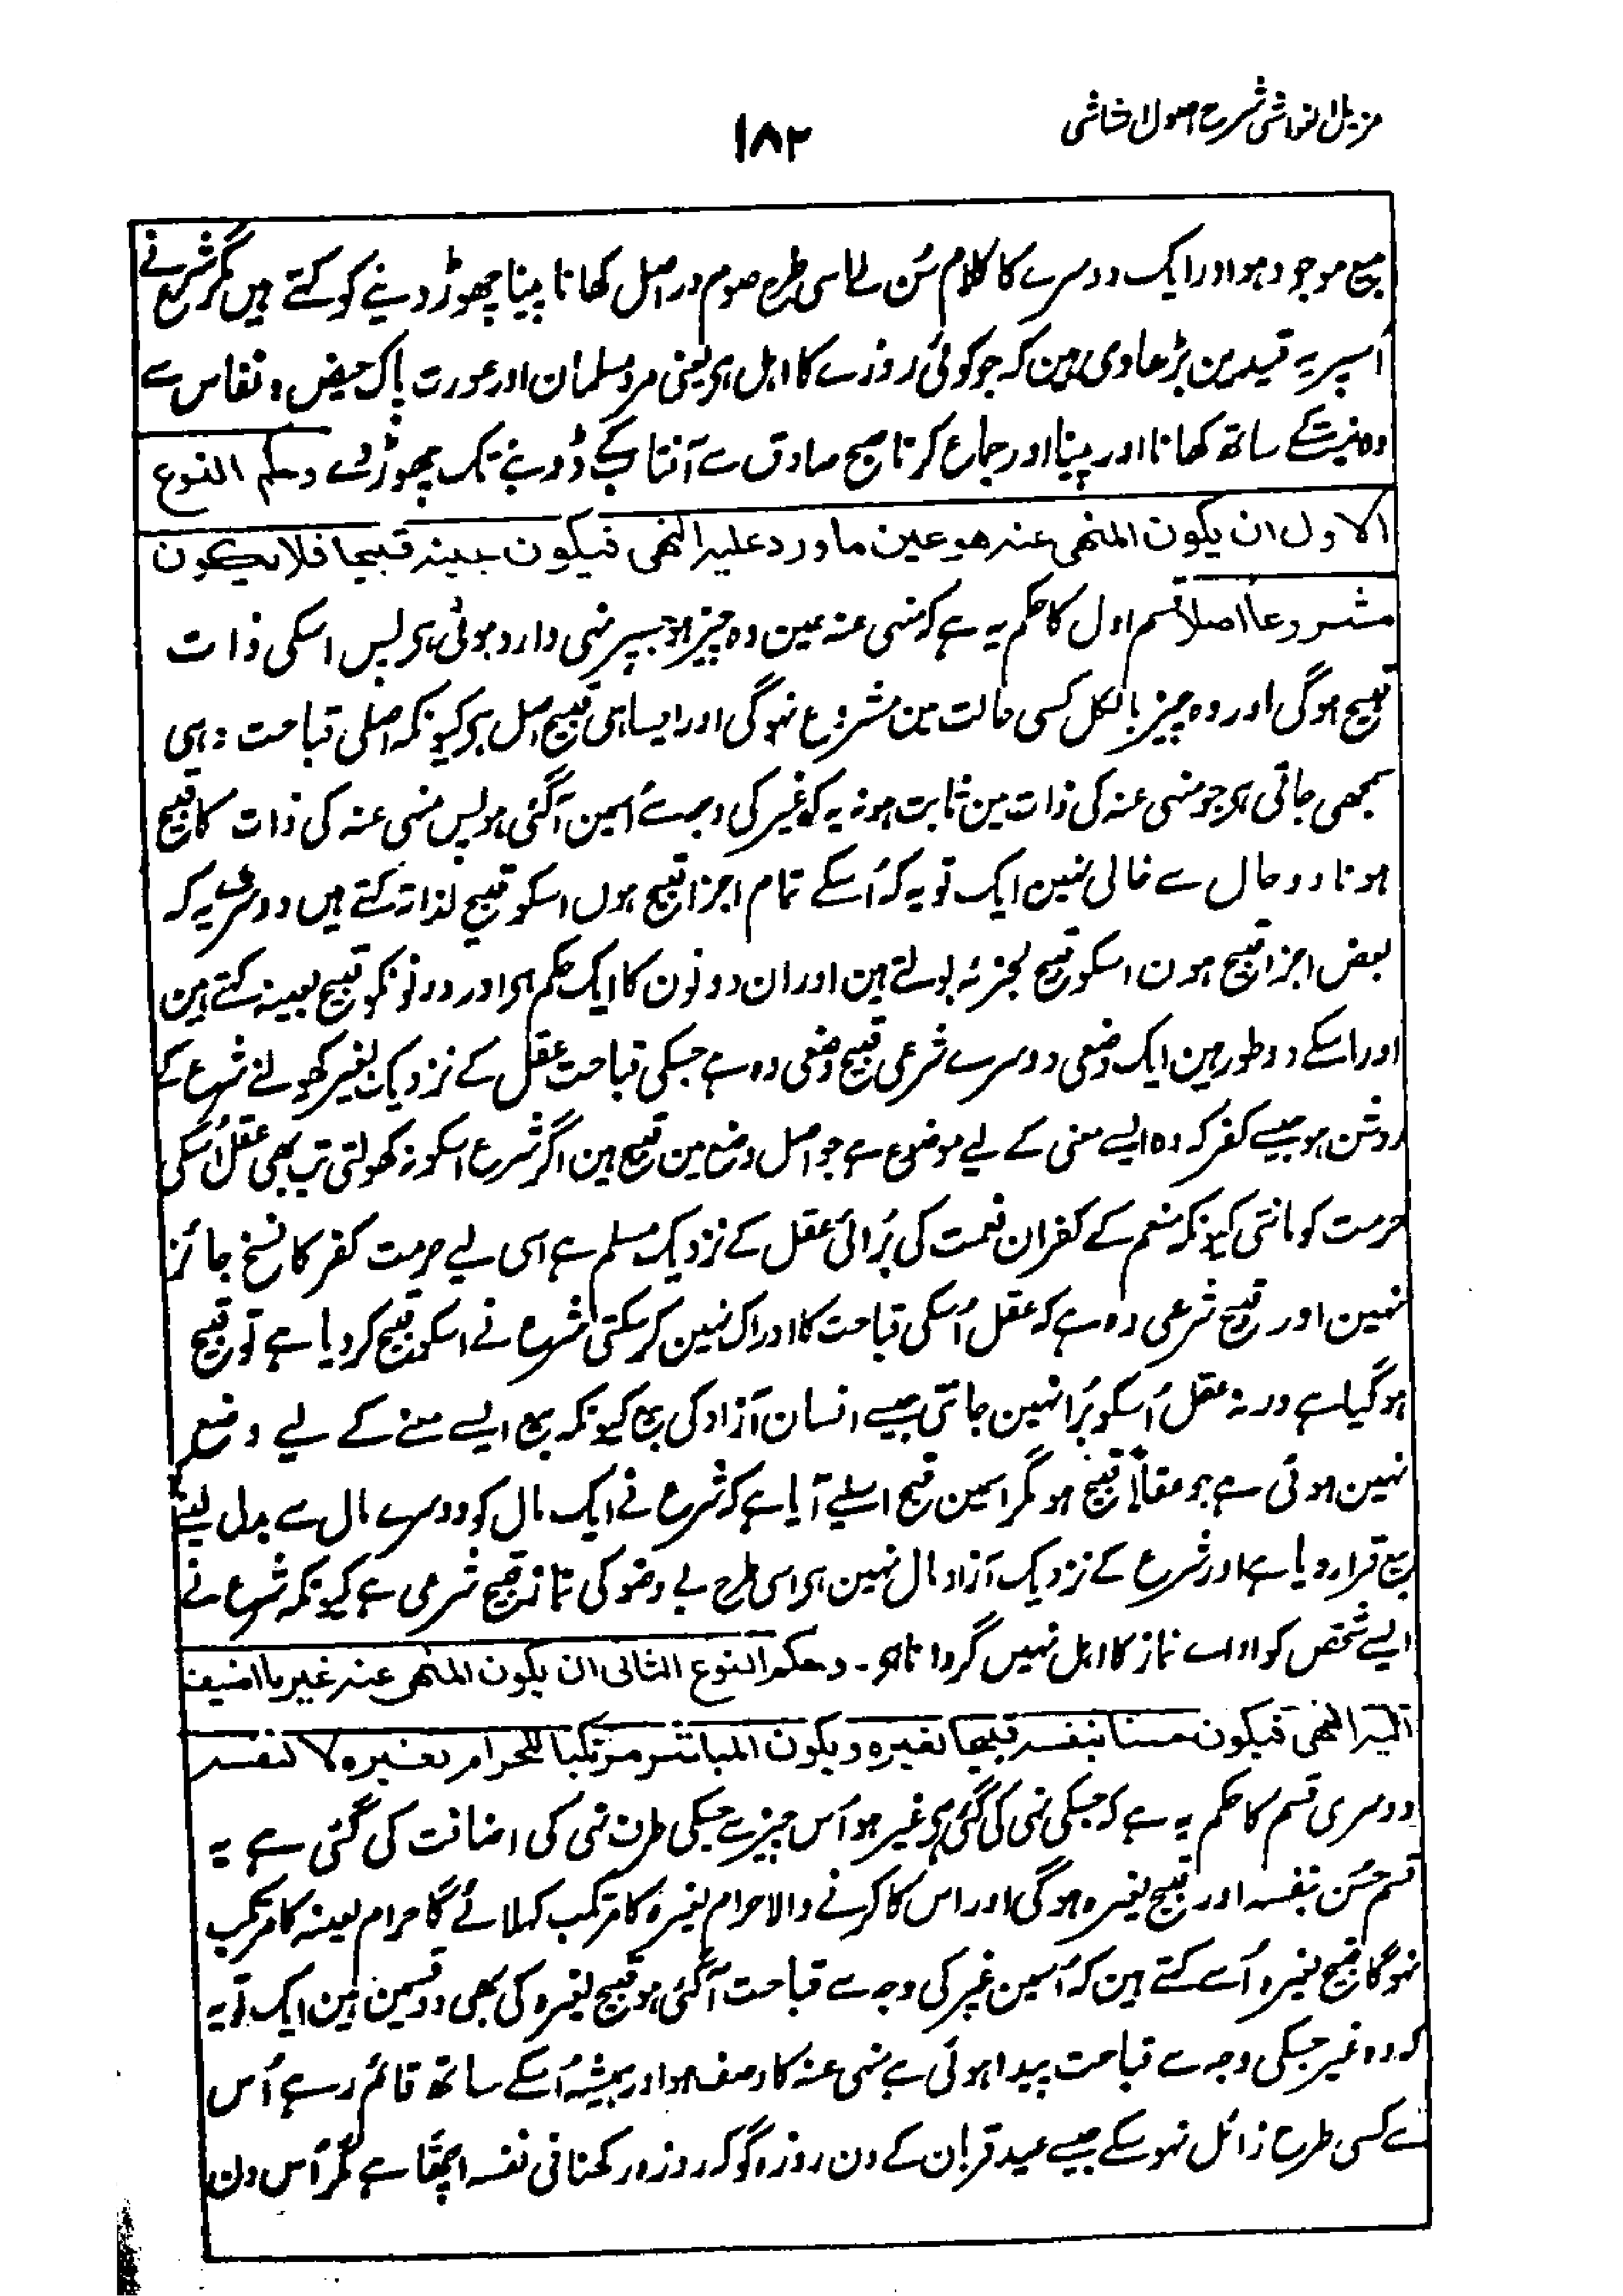 مزیل الغواشی شرح اصول الشاشی
۱۸۲
مبیع موجود ہو اور ایک دوسرے کا کلام سُن لے اسی طرح صوم در اصل کھانا پینا چھوڑ دینے کو کہتے ہیں مگر شرع نے
اُسپر یہ قیدین بڑھا دی ہین کہ جو کوئی روزے کا اہل ہی یعنی مرد مسلمان اور عورت پاک حیض و نفاس سے
وہ نیت کے ساتھ کھانا اور پینا اور جماع کرنا صبح صادق سے آفتاب کے ڈوبنے تک چھوڑ دے وحکم النوع
الاول ان یکون المنھی عنہ ھو عین ما ورد علیہ النھی فیکون عینہ قبیحا فلا یکون
مشروعاً اصلاً قسم اول کا حکم یہ ہے کہ منہی عنہ عین وہ چیز ہو جسپر نہی وارد ہوئی ہی پس اسکی ذات
قبیح ہوگی اور وہ چیز بالکل کسی حالت مین مشروع نہوگی اور ایسا ہی قبیح اصل ہی کیونکہ اصلی قباحت وہی
سمجھی جاتی ہی جو منہی عنہ کی ذات مین ثابت ہو نہ یہ کہ غیر کی وجہ سے اُسین آگئی ہو پس منہی عنہ کی ذات کا قبیح
ہونا دو حال سے خالی نہین ایک تو یہ کہ اُسکے تمام اجزا قبیح ہوں اسکو قبیح لذاتہ کہتے ہیں دوسری یہ کہ
بعض اجزا قبیح ہون اسکو قبیح لجزئہ بولتے ہین اور ان دونون کا ایک حکم ہی اور دونونکو قبیح بعینہ کہتے ہین
اور اسکے دو طور ہین ایک وضعی دوسرے شرعی قبیح وضعی وہ ہے جسکی قباحت عقل کے نزدیک بغیر کھولنے شرع کے
روشن ہو جیسے کفر کہ وہ ایسے معنی کے لیے موضوع ہے جو اصل وضع مین قبیح ہین اگر شرع اسکو نہ کھولتی تب بھی عقل اُسکی
حرمت کو مانتی کیونکہ منعم کے کفران نعمت کی بُرائی عقل کے نزدیک مسلم ہے اسی لیے حرمت کفر کا نسخ جائز
نہین اور قبیح شرعی وہ ہے کہ عقل اُسکی قباحت کا ادراک نہین کرسکتی شرع نے اسکو قبیح کر دیا ہے تو قبیح
ہوگیا ہے ورنہ عقل اُسکو بُرا نہین جانتی جیسے انسان آزاد کی بیع کیونکہ بیع ایسے معنے کے لیے وضع
نہین ہوئی ہے جو عقلاً قبیح ہو مگر اسمین قبح اسلیے آیا ہے کہ شرع نے ایک مال کو دوسرے مال سے بدل لینے
بیع قرار دیا ہے اور شرع کے نزدیک آزاد مال نہین ہی اسی طرح بے وضو کی نماز قبیح شرعی ہے کیونکہ شرع نے
ایسے شخص کو اداے نماز کا اہل نہیں گردانا ہی۔ وحکم النوع الثانی ان یکون المنھی عنہ غیر ما اضیف
الیہ النھی فیکون حسنا بنفسہ قبیحا لغیرہ ویکون المباشر مرتکبا للحرام لغیرہ لا لنفسہ
دوسری قسم کا حکم یہ ہے کہ جسکی نہی کی گئی ہی غیر ہو اُس چیز سے جسکی طرف نہی کی اضافت کی گئی ہے یہ
قسم حسُن بنفسہ اور قبیح لغیرہ ہوگی اور اس کا کرنے والا حرام لغیرہ کا مرتکب کہلائے گا حرام لعینہ کا مرتکب
نہوگا قبیح لغیرہ اُسے کہتے ہین کہ اُسمین غیر کی وجہ سے قباحت آگئی ہو قبیح لغیرہ کی بھی دو قسمین ہین ایک تو یہ
کہ وہ غیر جسکی وجہ سے قباحت پیدا ہوئی ہے منہی عنہ کا وصف ہو اور ہمیشہ اُسکے ساتھ قائم رہے اُس
سے کسی طرح زائل نہوسکے جیسے عید قربان کے دن روزہ گو کہ روزہ رکھنا فی نفسہ اچھا ہے مگر اُس دن